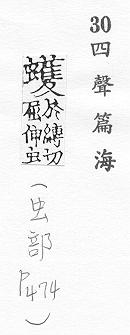 30四聲篇海
蠖 於縛切
屈伸虫
(虫部
P474)